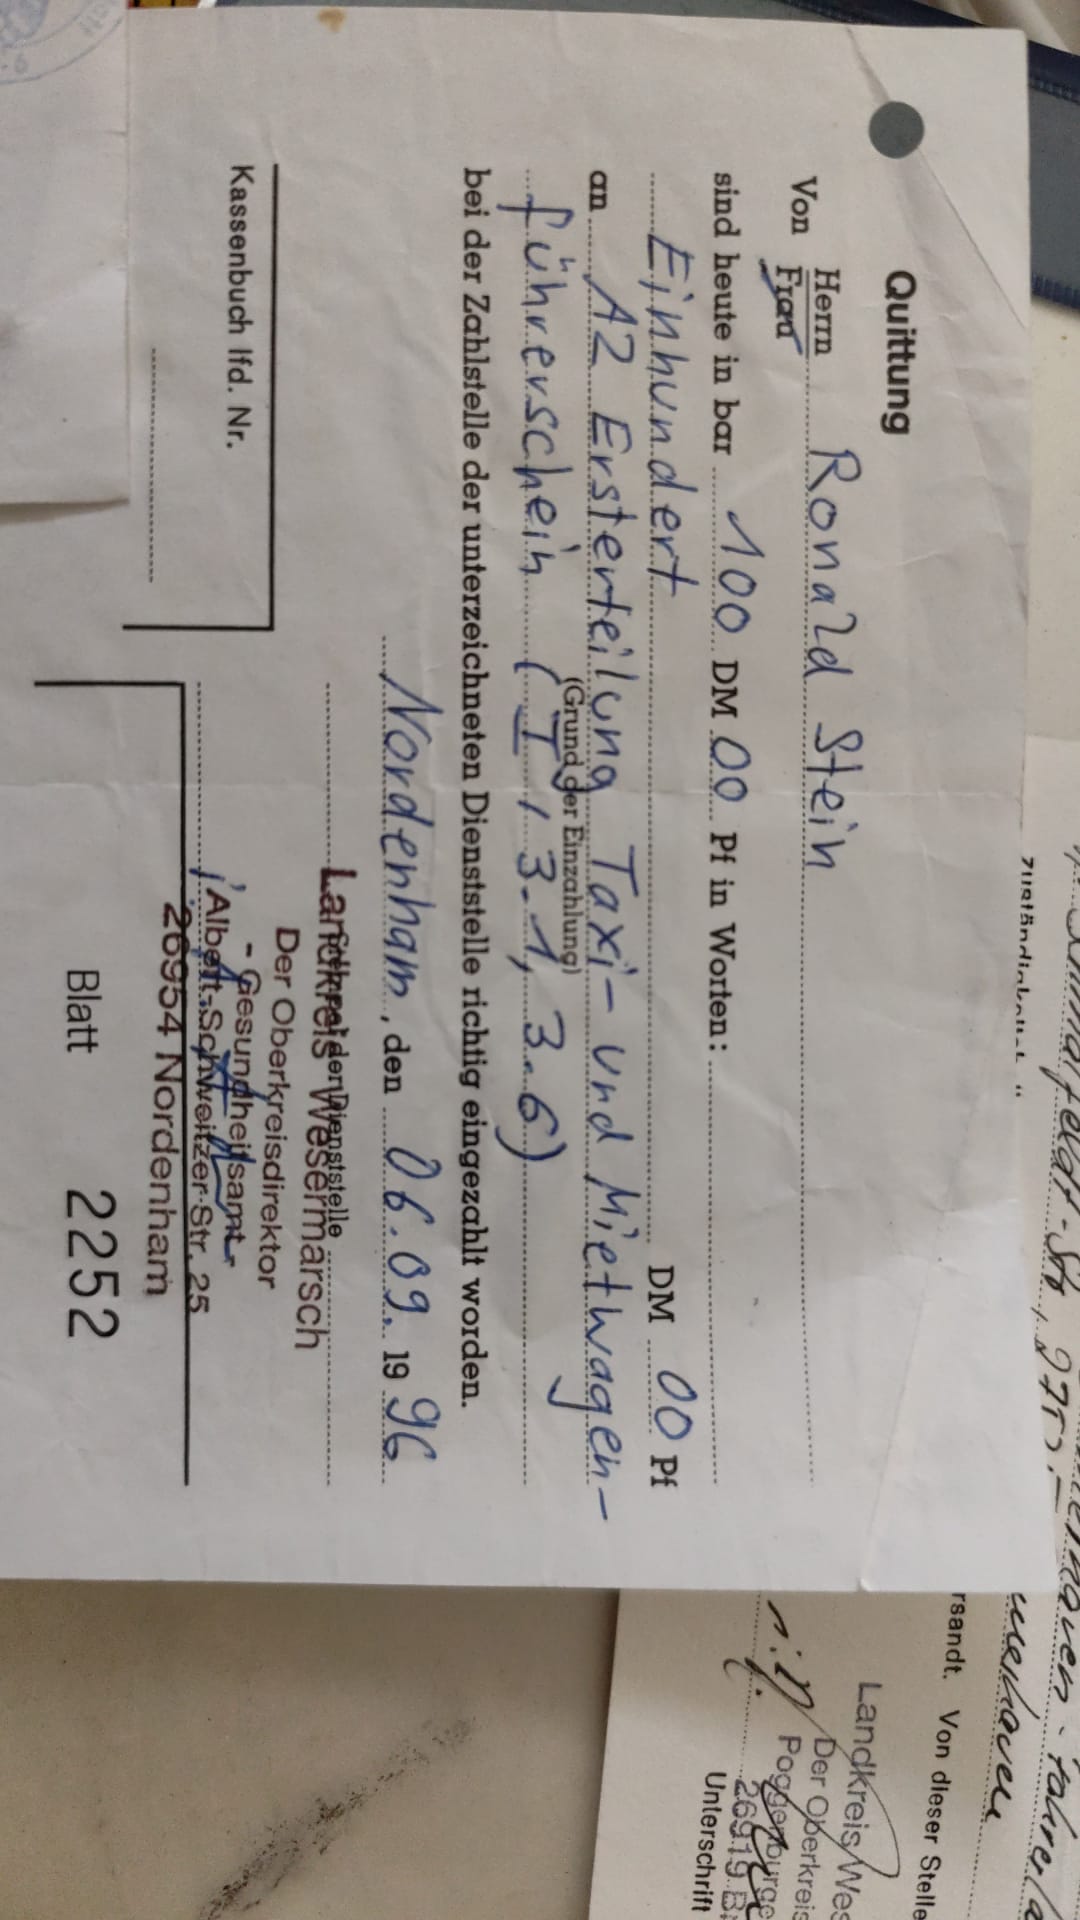 Quittung
Herrn
Von Frau Ronald Stein
sind heute in bar 100 DM 00 Pf in Worten:
Einhundert DM 00 Pf
an A2 Ersterteilung Taxi- und Mietwagen-
(Grund der Einzahlung)
führerschein (I, 3.1, 3.6)
bei der Zahlstelle der unterzeichneten Dienststelle richtig eingezahlt worden.
Nordenham, den 06.09. 19 96
der Dienststelle
Landkreis Wesermarsch
Der Oberkreisdirektor
- Gesundheitsamt -
Albert-Schweitzer-Str. 25
26954 Nordenham
Kassenbuch lfd. Nr.
Blatt 2252
rsandt. Von dieser Stelle
Landkreis Wes
Der Oberkreis
Poggenburge
26919 B
Unterschrift